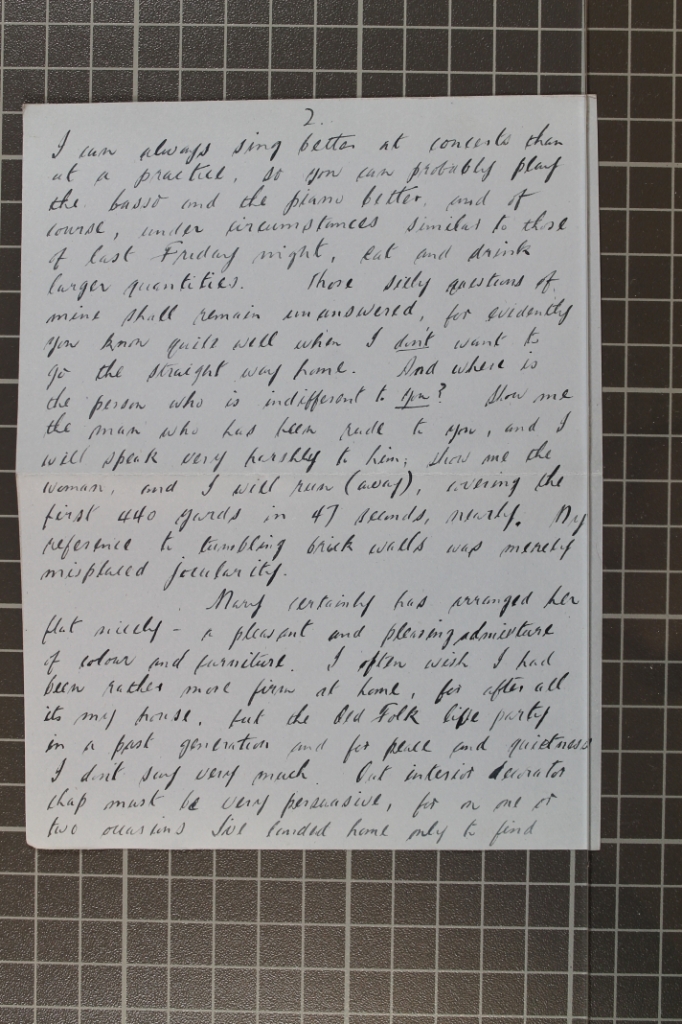 2.
I can always sing better at concerts than
at a practice, so you can probably play
the basso and the piano better, and of
course, under circumstances similar to those
of last Friday night, eat and drink
larger quantities. Those silly questions of
mine shall remain unanswered, for evidently
you know quite well when I don't want to
go the straight way home. And where is
the person who is indifferent to you? Show me
the man who has been rude to you, and I
will speak very harshly to him; show me the
woman, and I will run (away), covering the
first 440 yards in 47 seconds, nearly. My
reference to tumbling brick walls was merely
misplaced jocularity.
Mary certainly has arranged her
flat nicely - a pleasant and pleasing admixture
of colour and furniture. I often wish I had
been rather more firm at home, for after all
its my house, but the Old Folk live partly
in a past generation and for peace and quietness
I don't say very much. Our interior decorator
chap must be very persuasive, for on one or
two occasions I've landed home only to find